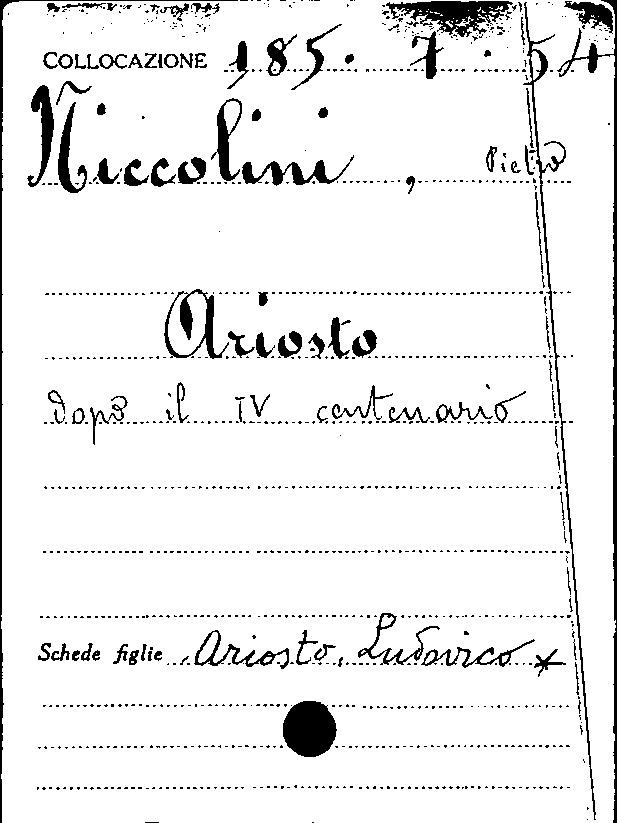 COLLOCAZIONE 185. 7. 54
Niccolini, Pietro
Ariosto
dopo il IV centenario
Schede figlie Ariosto, Ludovico *